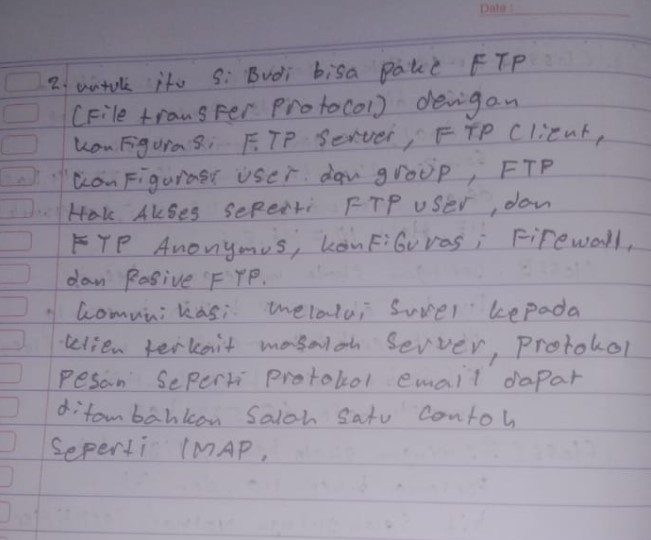 Date:
2. untuk itu si Budi bisa pake FTP
(File transfer Protocol) dengan
konfigurasi FTP Server, FTP Client,
konfigurasi user dan group, FTP
Hak Akses seperti FTP user, dan
FTP Anonymus, konfigurasi Firewall,
dan Pasive FTP.
komunikasi melalui surel kepada
klien terkait masalah server, protokol
pesan seperti protokol email dapat
ditambahkan salah satu contoh
seperti IMAP.